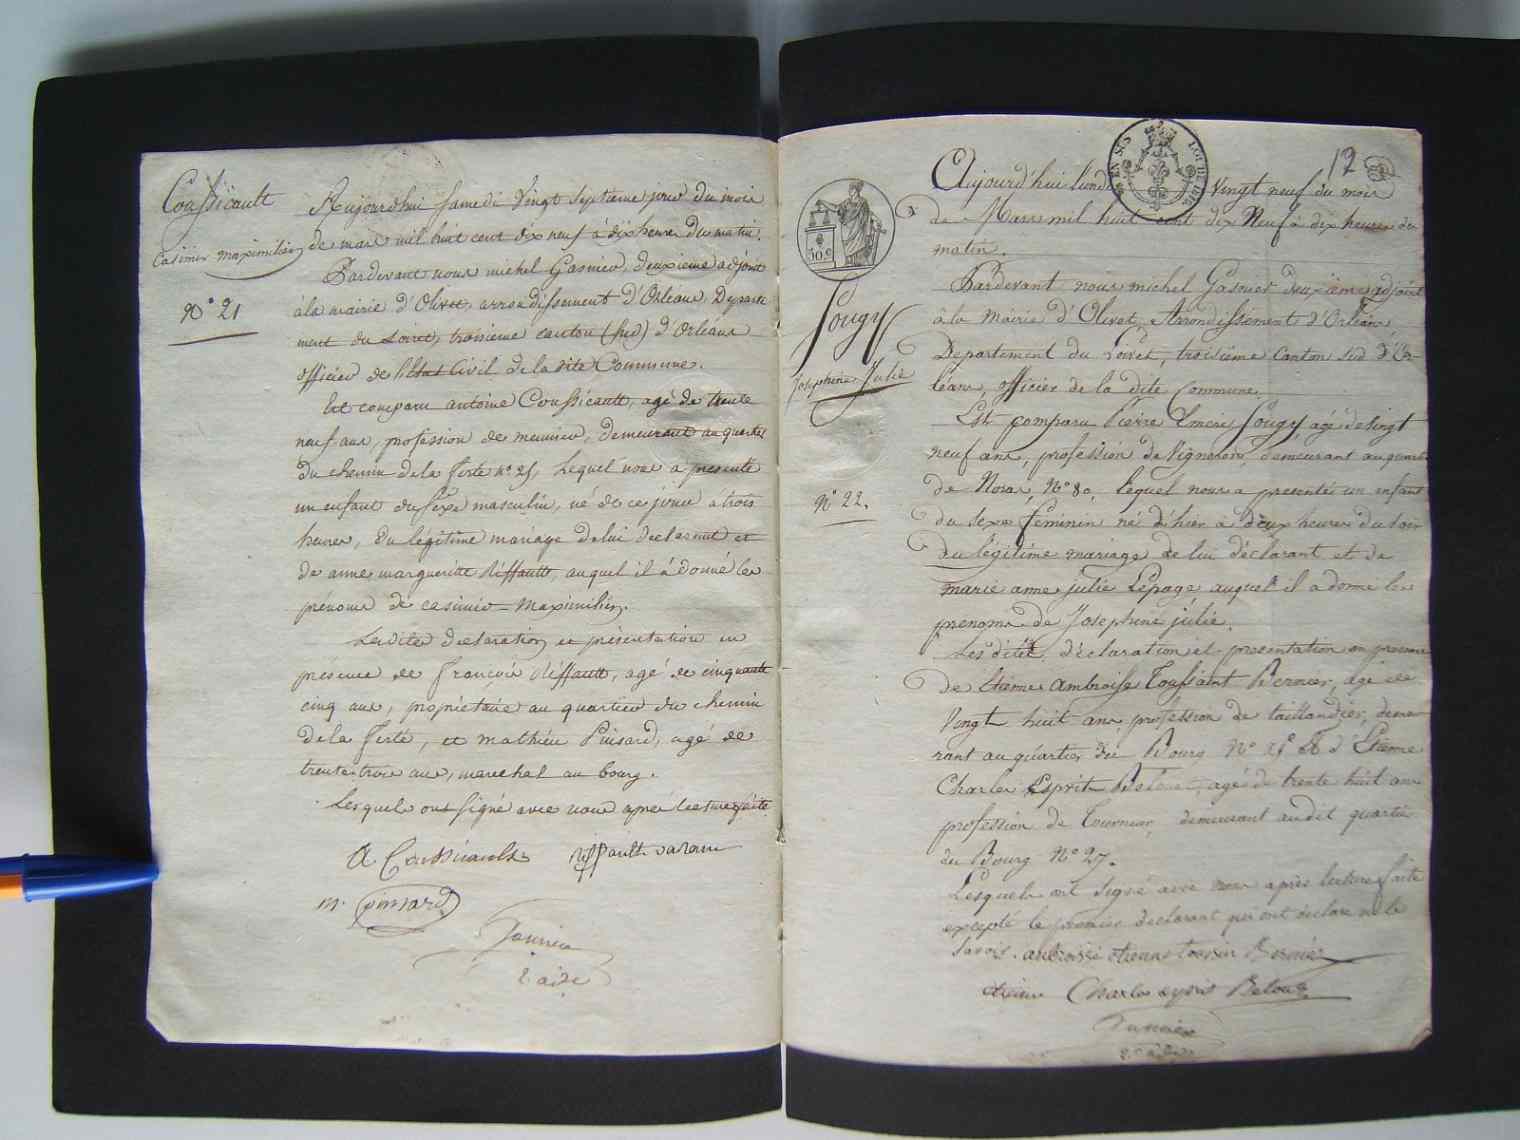 Coussicault
Casimir maximilien
N° 21
Aujourdhui samedi vingt septieme jour du mois
de mars mil huit cent dix neuf à dix heures du matin.
Pardevant nous michel Gasnier, deuxieme adjoint
à la mairie d'Olivet, arrondissement d'Orléans, Departe
ment du Loiret, troisieme canton (sud) d'Orleans
officier de l'Etat Civil de la dite Commune.
Est comparu antoine Coussicault, agé de trente
neuf ans, profession de meunier, demeurant au quartier
du chemin de la ferté n° 25, lequel nous a presenté
un enfant du sexe masculin, né de ce jour a trois
heures, du légitime mariage de lui declarant et
de anne marguerite Riffault, auquel il à donné les
prénoms de casimir maximilien.
Lesdites declaration et présentation en
présence de françois Riffault, agé de cinquante
cinq ans, propriétaire au quartier du chemin
de la ferté, et mathieu Puisard, agé de
trente trois ans, marechal au bourg.
Lesquels ont signé avec nous après lecture faite
A Coussicault Riffault
m. pinsard
Gasnier
12
Aujourd'hui lundi vingt neuf du mois
de Mars mil huit cent dix Neuf à dix heures du
matin.
Pardevant nous michel Gasnier deuxième adjoint
à la Mairie d'Olivet, Arrondissement d'Orléans,
Departement du Loiret, troisième Canton sud d'Or-
léans, officier de la dite Commune.
Fougy
Josephine Julie
N° 22.
Est comparu Pierre Emerie Fougy agé de vingt
neuf ans, profession de Vigneron, demeurant au quartier
de Noras, N° 80, lequel nous a presentés un enfant
du sexe féminin né d'hier à deux heures du soir
du légitime mariage de lui déclarant et de
marie anne julie Lepage auquel il a donné les
prenoms de Josephine julie.
Les dites déclaration et presentation en presence
de Etienne Ambroise Toussaint Bernier, agé de
Vingt huit ans, profession de taillandier, demeu
rant au quartier du Bourg N° & d'Etienne
Charles Esprit Beloux, agé de trente huit ans
profession de Tourneur, demeurant audit quartier
du Bourg N° 27.
Lesquels ont signé avec nous après lecture faite
excepté le premier declarant qui ont déclaré ne le
savoir. ambroise etienne tousin Bernier
etienne Charles esprit Beloux
Gasnier